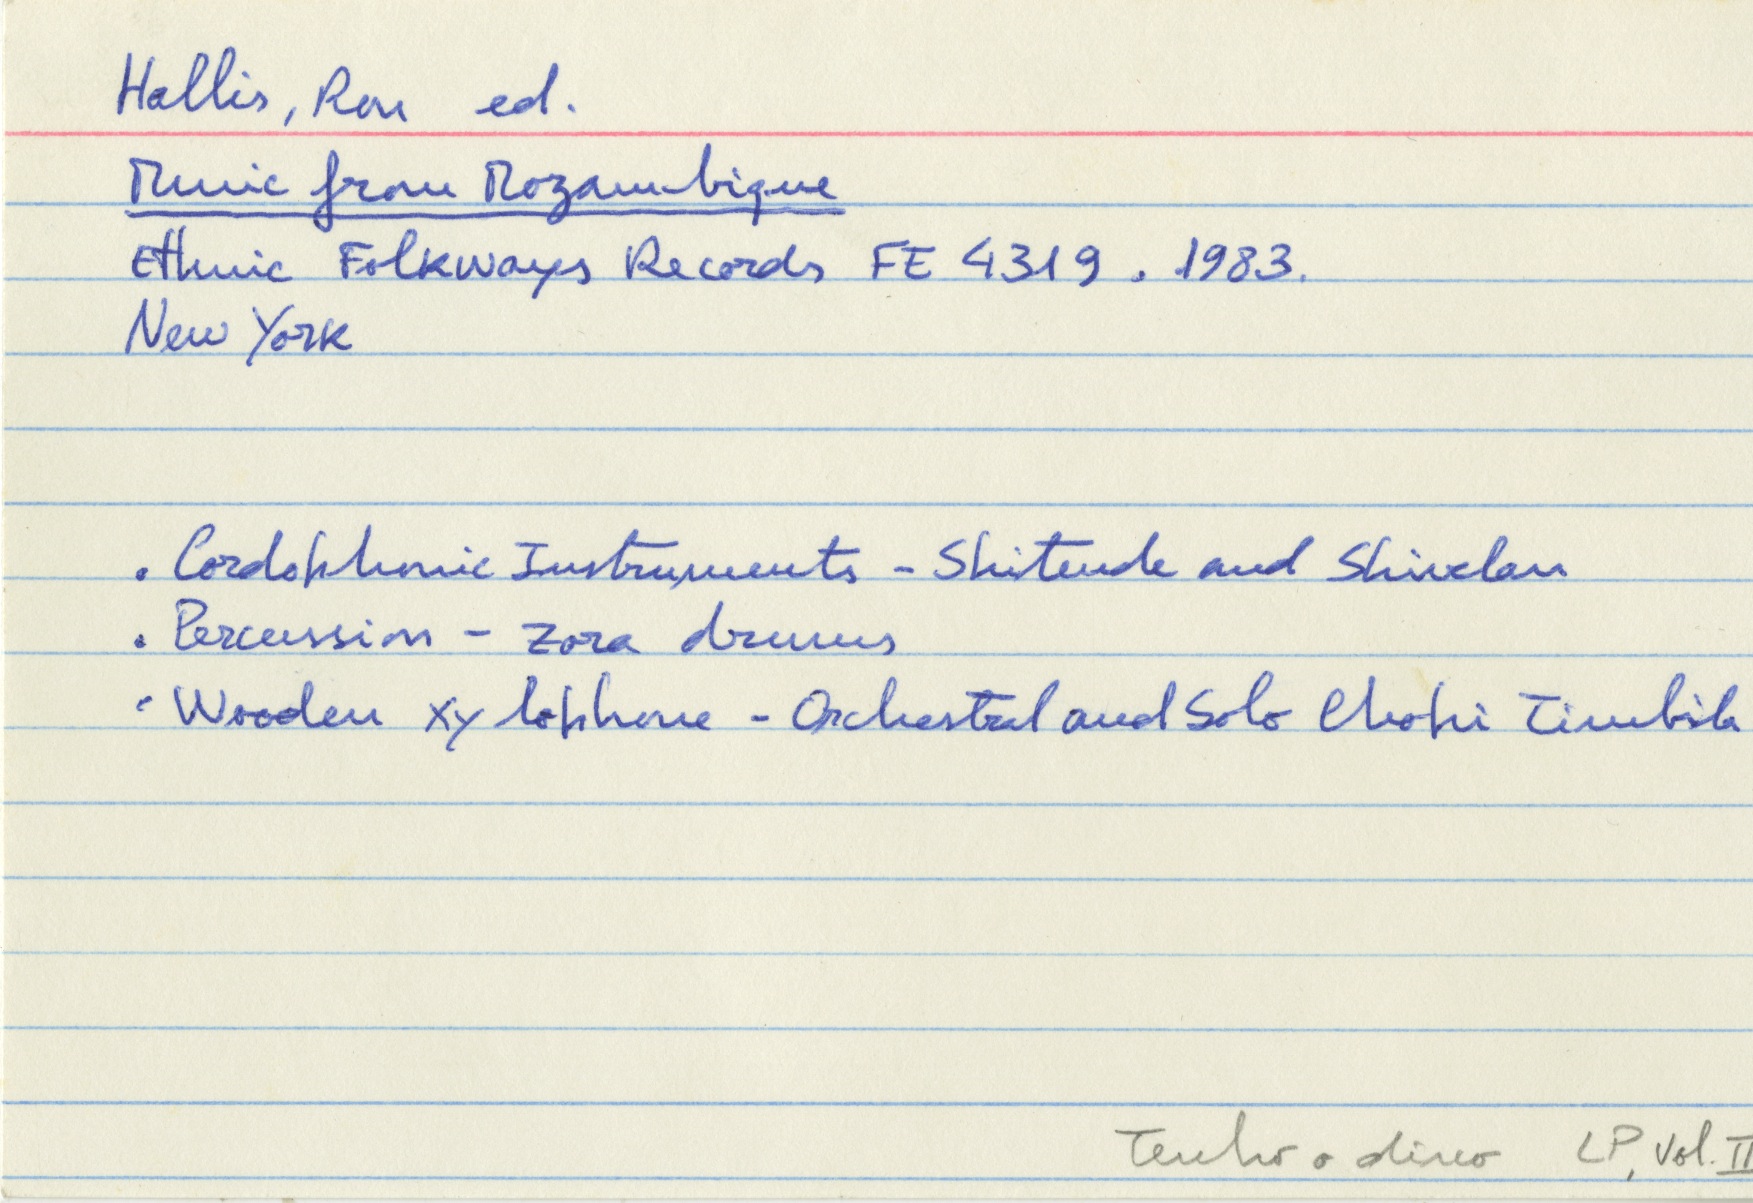 Hallis, Ron ed.
Music from Mozambique
Ethnic Folkways Records FE 4319. 1983.
New York
. Cordophonic Instruments - Shitende and Shivelan
. Percussion - Zora drums
. Wooden xylophone - Orchestral and Solo Chopi Timbila
Tenho o disco LP, Vol. II